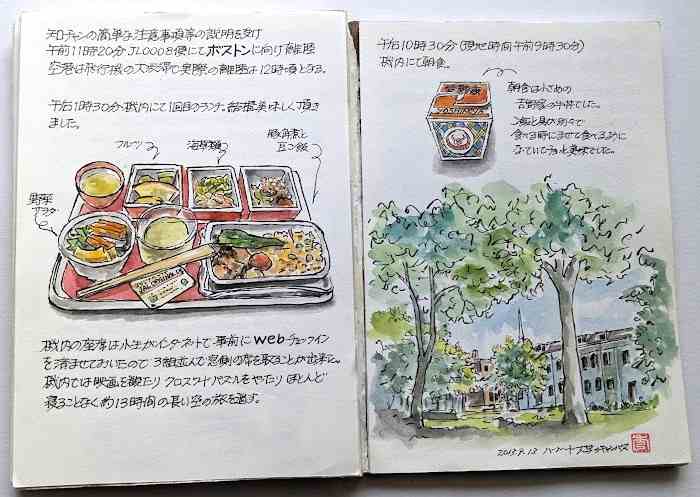 チャンの簡単な注意事項等の説明を受け
午前11時20分 JL0008便にてボストンに向け離陸
空港は飛行機の大渋滞で実際の離陸は12時頃となる。
午后1時30分、機内にて1回目のランチ、結構美味しく頂き
ました。
フルーツ
海草類
豚角煮と
豆ご飯
野菜
サラダ
機内の座席は小生がインターネットで事前にwebチェックイン
を済ませておいたので3組並んで窓側の席を取ることが出来た。
機内では映画を観たりクロスワードパズルをやたりほとんど
寝ることなく約13時間の長い空の旅を過す。
午后10時30分(現地時間午前9時30分)
機内にて朝食。
朝食は小さめの
吉野家の牛丼でした。
ご飯と具が別々で
食べる時にまぜて食べるように
なっていてチョット美味でした。
吉野家
YOSHINOYA
2013.9.13 ハーバード大学のキャンパス